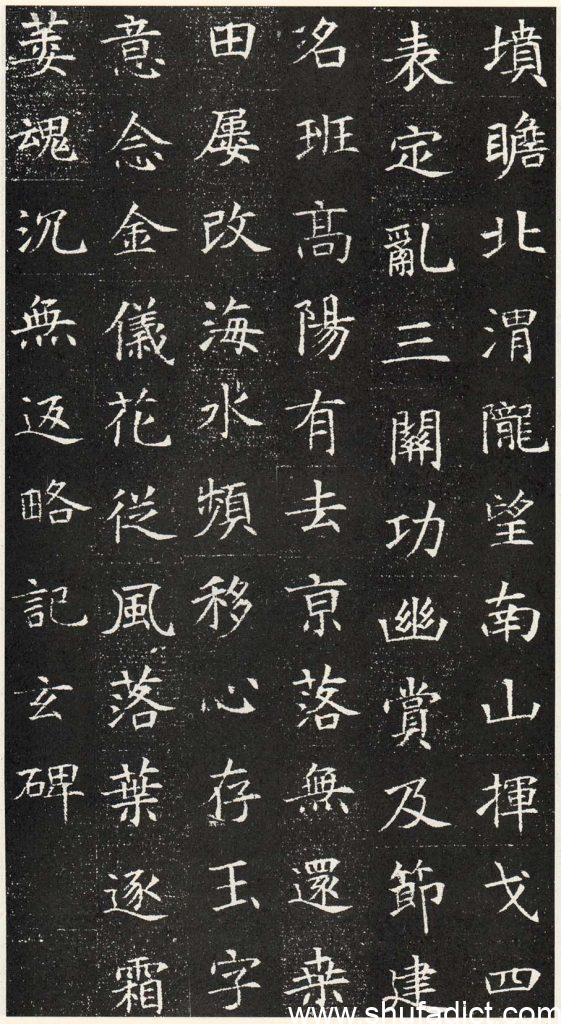 墳瞻北渭隴望南山揮戈四
表定亂三關功幽賞及節建
名班髙陽有去亰落無還桒
田屢改海水頻移心存玉字
意念金儀花從風落葉逐霜
萎魂沉無返略記玄碑
www.shufadict.com